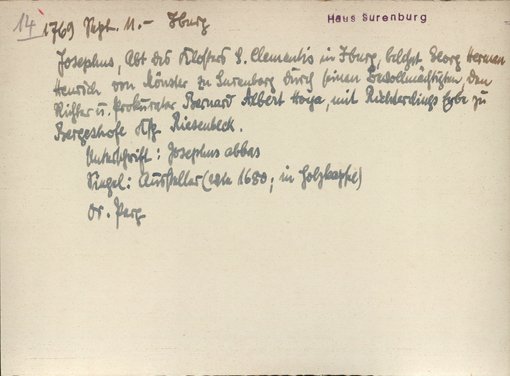 14 1769 Sept. 11.- Iburg
Haus Surenburg
Josephus, Abt des Klosters S. Clementis in Iburg, belehnt Georg Herman
Henrich von Mönster zu Surenborg durch seinen Bevollmächtigten, den
Richter u. Prokurator Bernard Albert Hoya, mit Richterdings Erbe zu
Bergeshofe Ksp. Riesenbeck.
Unterschrift: Josephus abbas
Siegel: Aussteller (rota 1680; in Holzkapsel)
Or. Perg